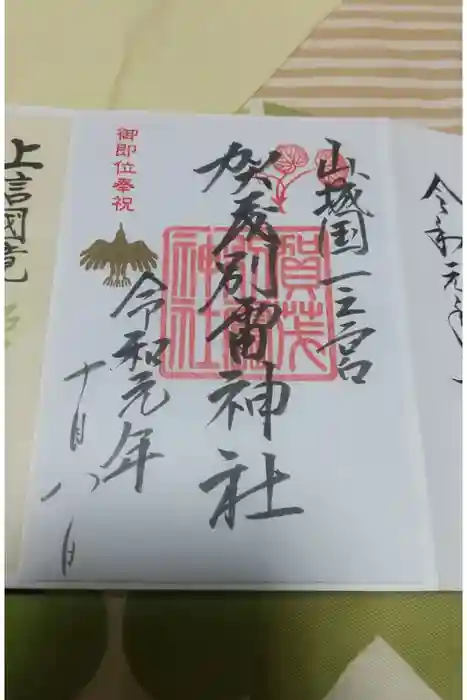 令和元年
山城国一之宮
賀茂別雷神社
賀茂別雷神社
御即位奉祝
令和元年
十月八日
上信國境